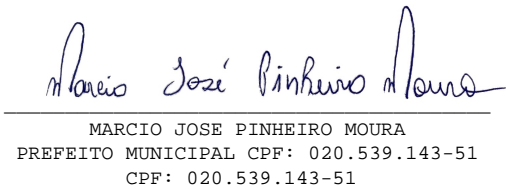 Marcio José Pinheiro Moura
MARCIO JOSE PINHEIRO MOURA
PREFEITO MUNICIPAL CPF: 020.539.143-51
CPF: 020.539.143-51